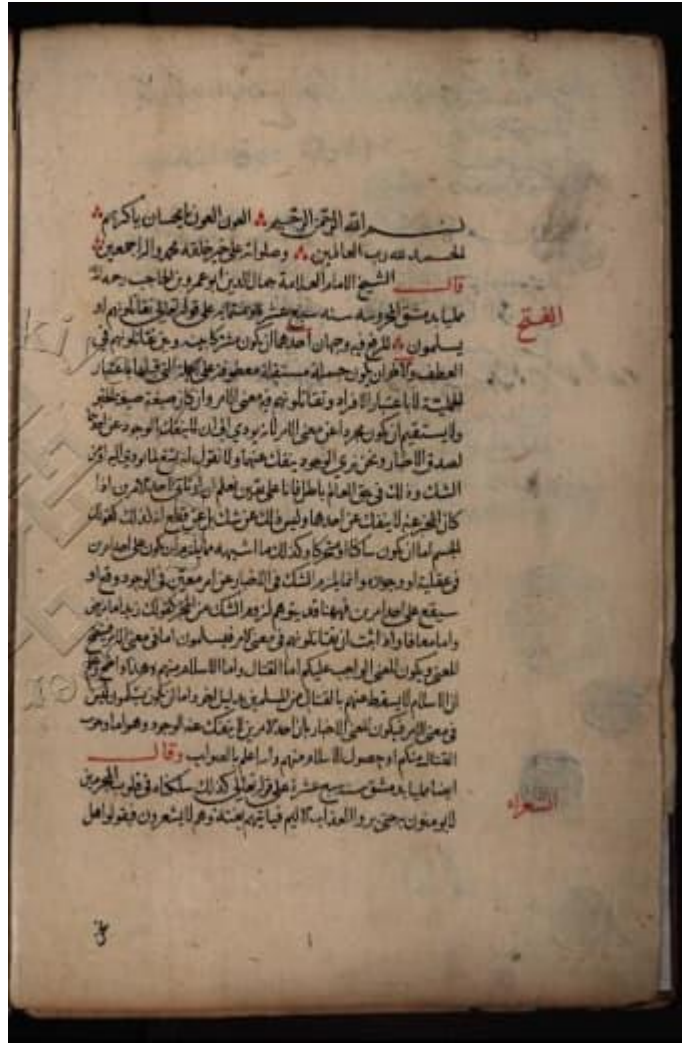 بسم الله الرحمن الرحيم العون العون يا محسان يا كريم
الحمد لله رب العالمين وصلواته على خير خلقه محمد واله اجمعين
قال الشيخ الامام العلامة جمال الدين ابو عمرو بن الحاجب رحمه الله
ممليا بدمشق المحروسة سنه سبع عشرة وستمايه على قوله تعالى تقاتلونهم او
الفتح
يسلمون للرفع فيه وجهان احدهما ان يكون مشركا بينه وبين تقاتلونهم في
العطف والاخر ان يكون جملة مستقلة معطوفة على الجملة التي قبلها باعتبار
الجملية لا باعتبار الافراد وتقاتلونهم فيه معنى الامر وان كان صيغة صيغة الخبر
ولا يستقيم ان يكون مجردا عن معنى الامر لانه يودي الى ان لا ينفك الوجود عن احدهما
لصدق الاخبار ونحن نرى الوجود ينفك عنهما ولا نقول انه يمتنع لما يودي اليه او من
الشك وذلك في حق العالم باطل فانا على يقين نعلم ان او تاتي لاحد الامرين اذا
كان المخبر عنه لا ينفك عن احدهما وليس ذلك عن شك بل عن قطع اذ ذلك كقولك
الجسم اما ان يكون ساكنا او متحركا وكذلك ما اشبهه مما يلزم ان يكون على احد امرين
في عقلية او وجود وانما يلزم الشك في الاخبار عن امر معين في الوجود وقع او
سيقع على احد امرين فههنا قد يتوهم لزوم الشك من المخبر كقولك زيد اما مريض
واما معافا واذا ثبت ان تقاتلونهم في معنى الامر فيسلمون اما في معنى الامر
المعنى ويكون المعنى الواجب عليكم اما القتال واما الاسلام منهم وهذا
ان الاسلام لا يسقط عنهم بالقتال من المسلمين بدليل اخر واما ان يكون يسلمون ليس
في معنى الامر فيكون المعنى الاخبار بان احد الامرين لا ينفك عنه الوجود وهو اما وجوب
القتال منكم او حصول الاسلام منهم والله اعلم بالصواب وقال
ايضا ممليا بدمشق سنه سبع عشرة على قوله تعالى كذلك سلكناه في قلوب المجرمين
الشعراء
لا يومنون به حتى يروا العذاب الاليم فياتيهم بغتة وهم لا يشعرون فيقولوا هل